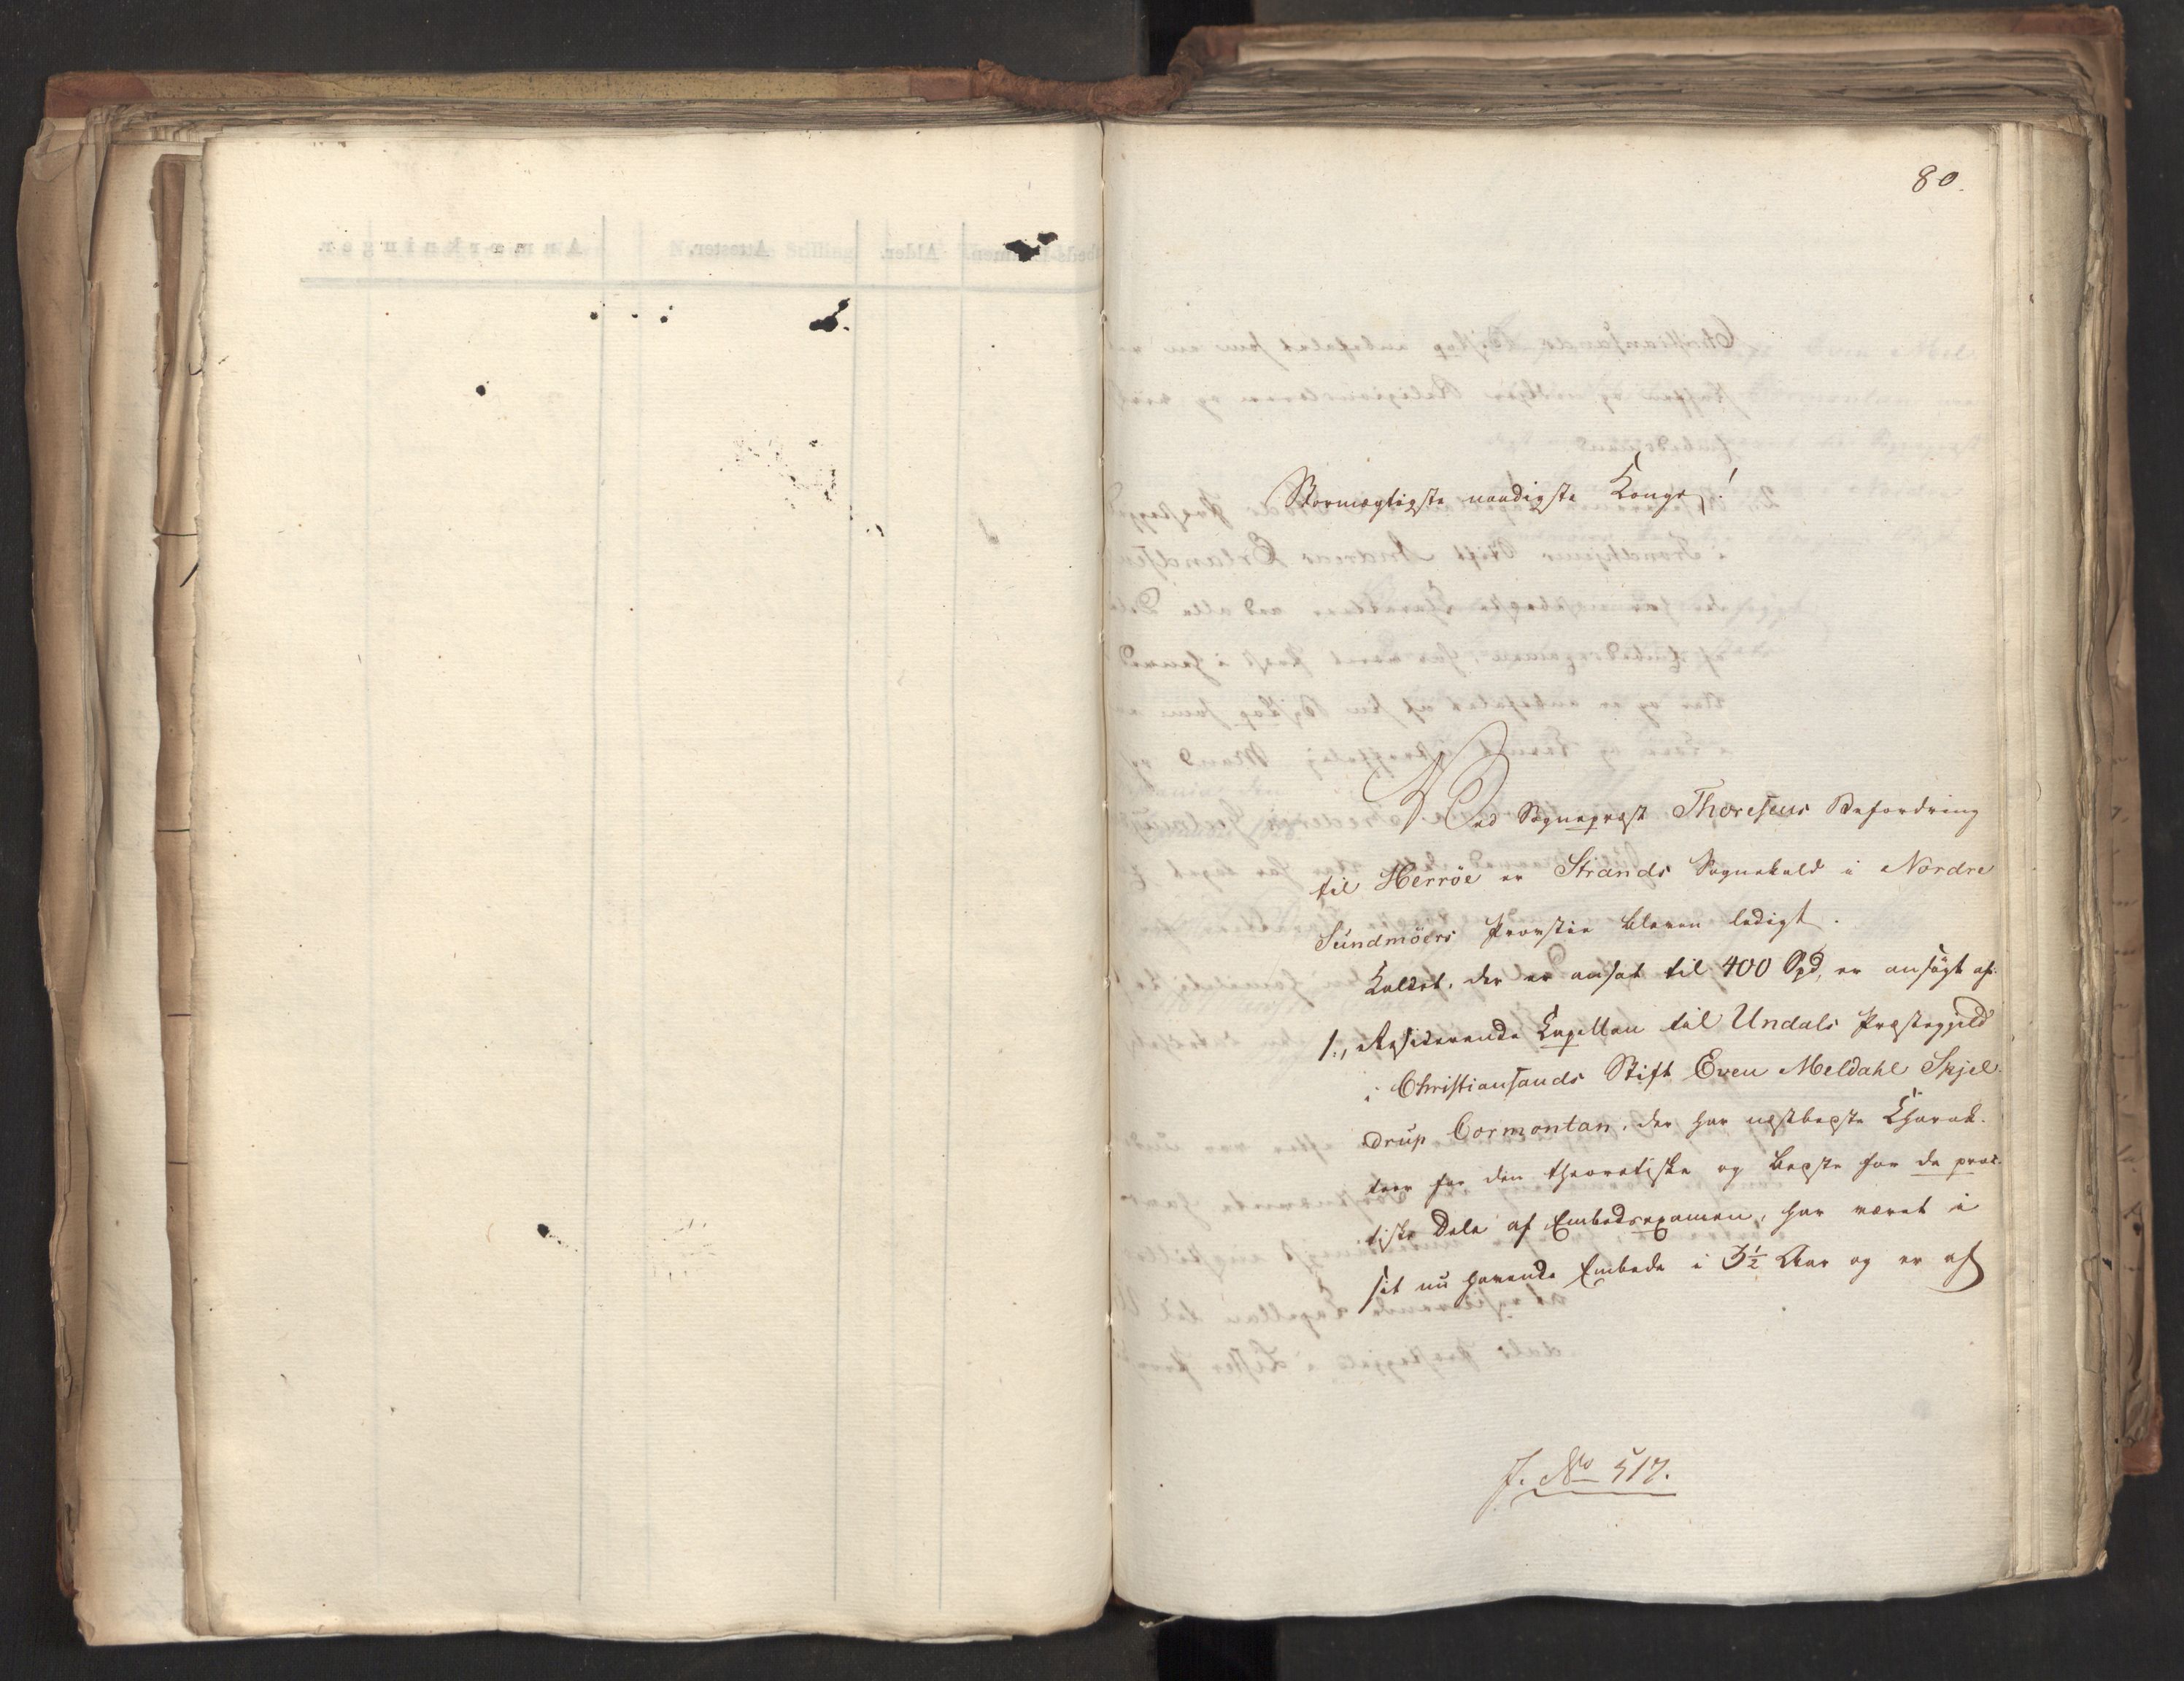 80.
Stormægtigste naadigste Konge!
Ved Sognepræst Thoresens Befordring
til Herröe er Strands Sognekald i Nordre
Søndmöers Provstie bleven ledigt.
Kaldet, der er ansat til 400 Spd, er ansøgt af:
1., Residerende Capellan til Undals Præstegjeld
i Christiansands Stift Even Meldahl Skjel-
drup Cormontan, der har næstbeste Charak-
teer for den theoretiske og beste for de prac-
tiske Dele af Embedsexamen, har været i
sit nu havende Embede i 3½ Aar og er af
J. No 517.